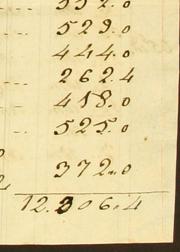 552.0
529.0
444.0
262.4
418.0
525.0
372.0
12.306.4